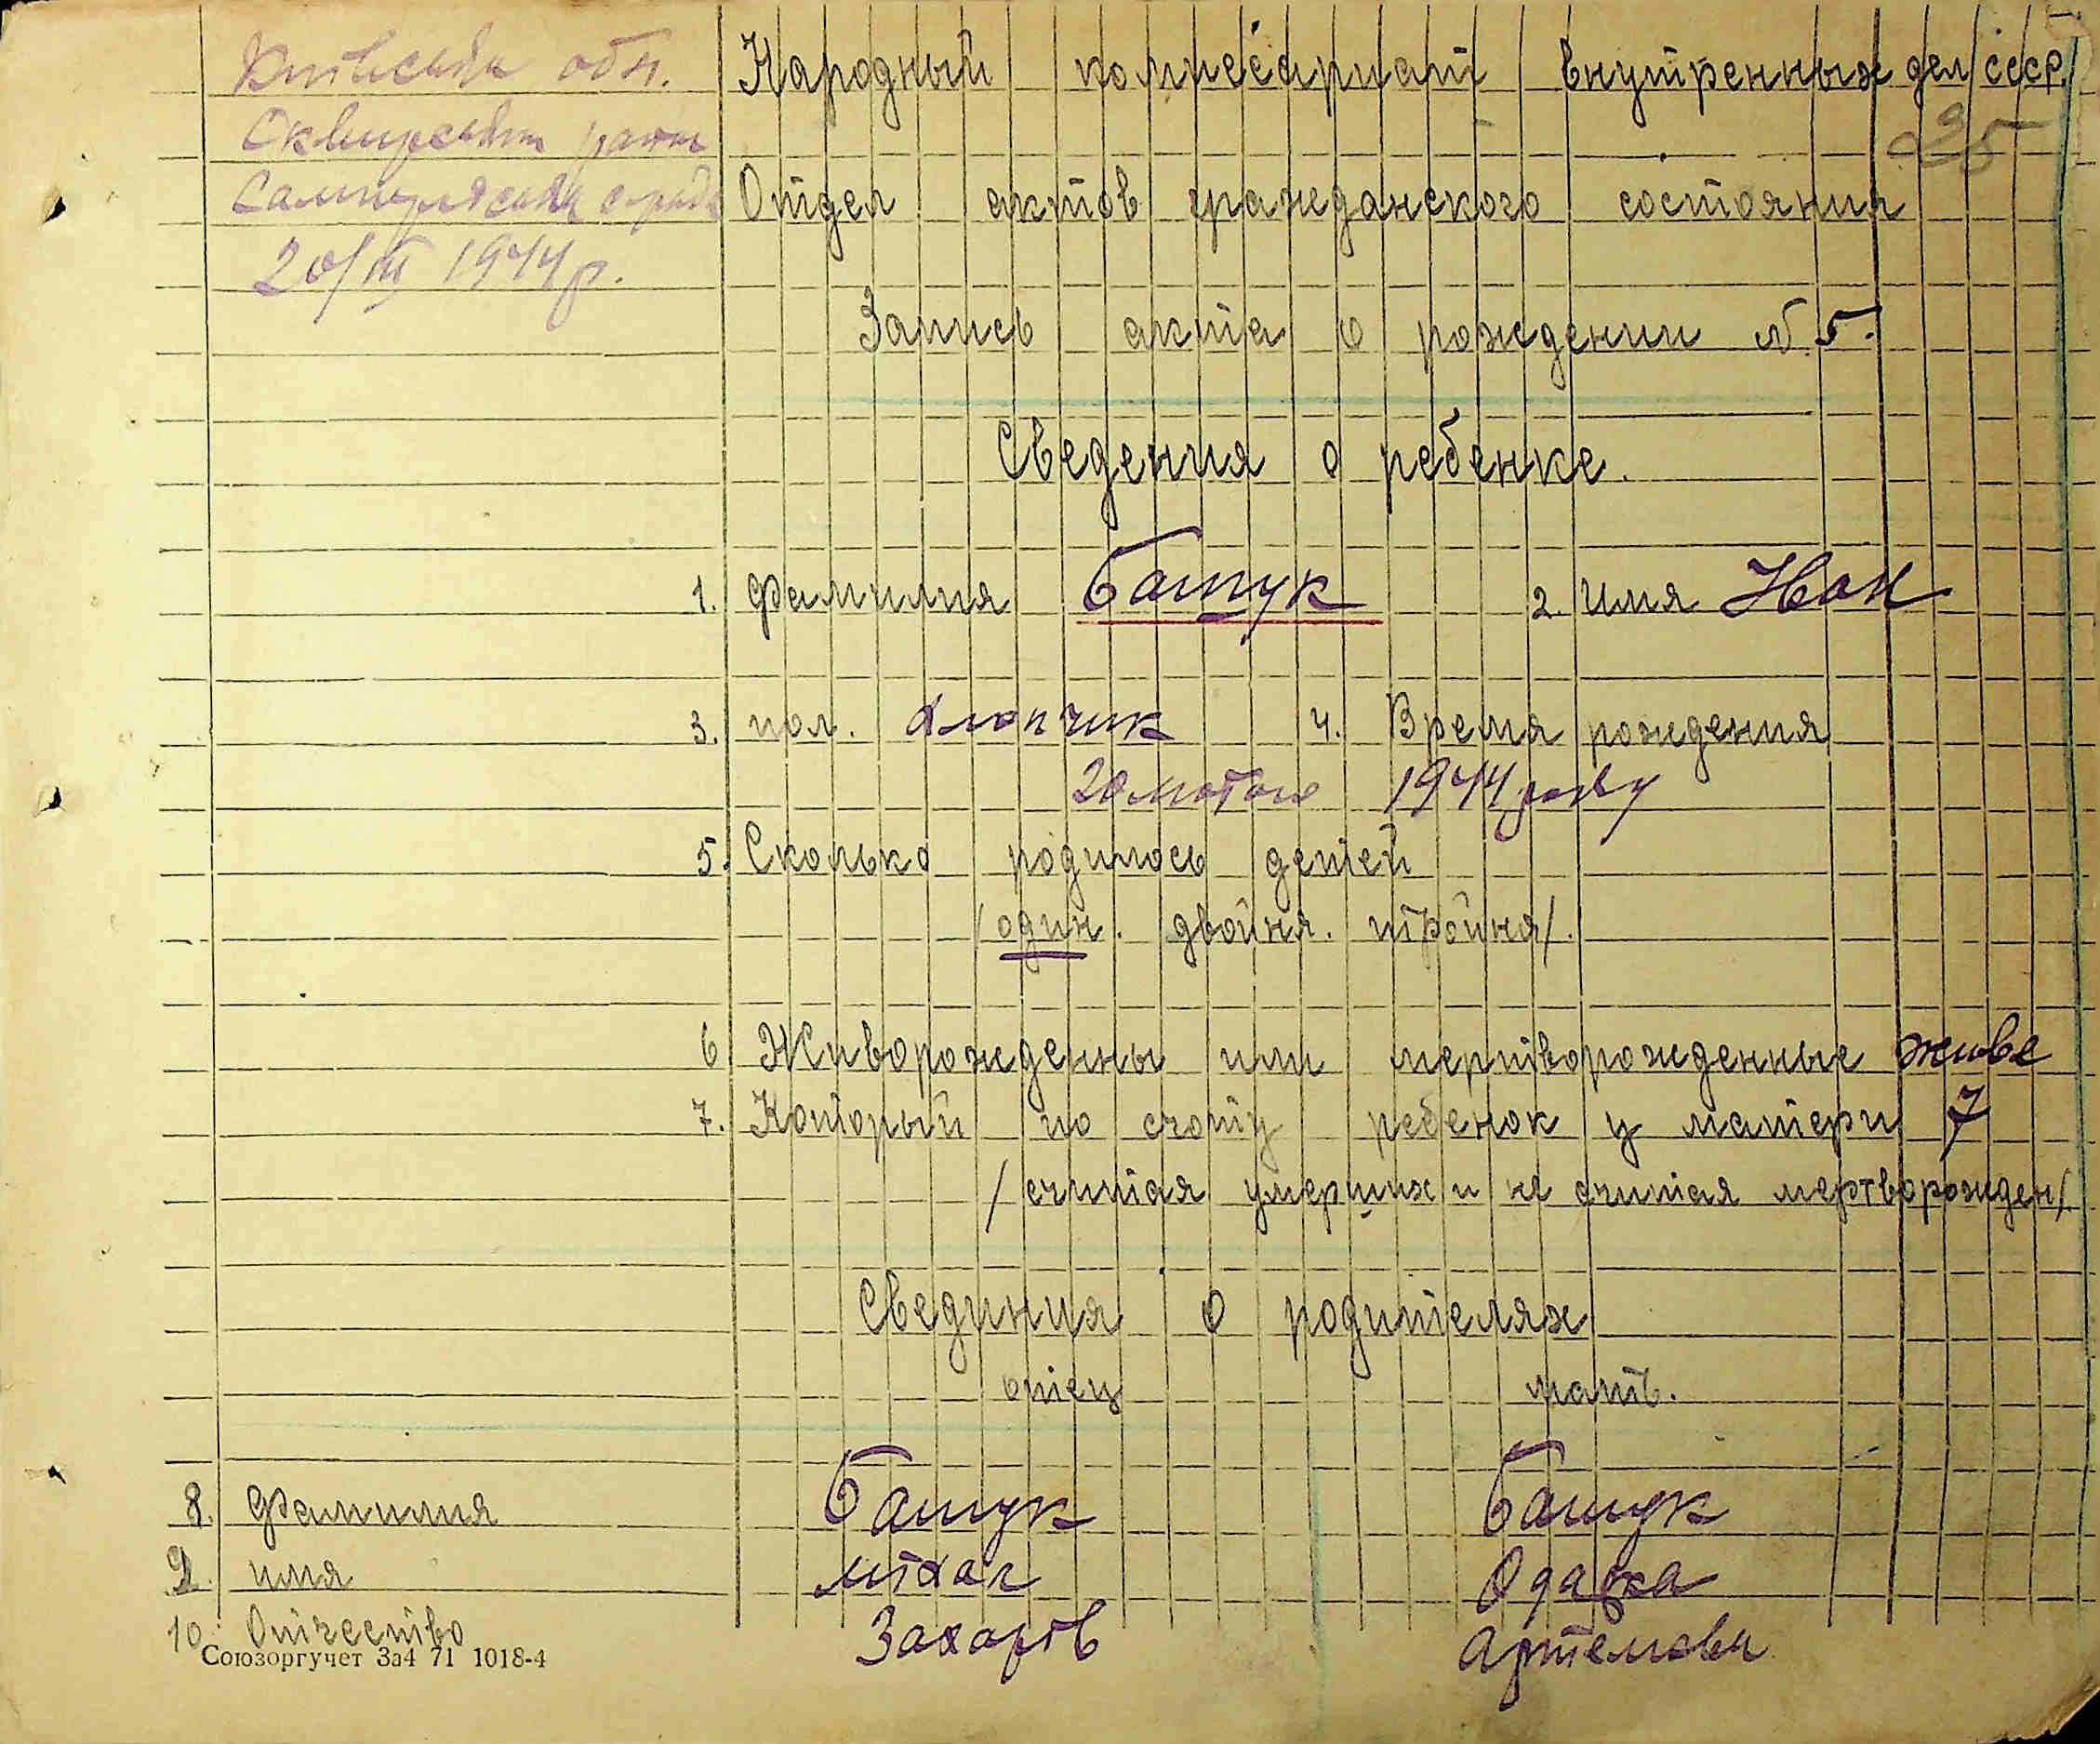 Київська обл.
Сквирський район
сільрада
20/III 1944 р.
Народный комиссариат внутренных дел СССР
35
Отдел актов гражданского состояния
Запись акта о рождении № 5.
Сведения о ребенке.
1. Фамилия Башук 2. Имя Іван
3. пол. Хлопчик 4. Время рождения
20 лютого 1944 року
5. Сколько родилось детей
/один. двойня. тройня/.
6 Живорожденны или мертворожденные живе
7. Который по счоту ребенок у матери 7
/считая умерших и не считая мертворожден/.
Свединия о родителях
отец мать.
8. Фамилия Башук Башук
9. имя Міхал Одарка
10. Отчество Захарів Артемовн
Союзоргучет За4 71 1018-4